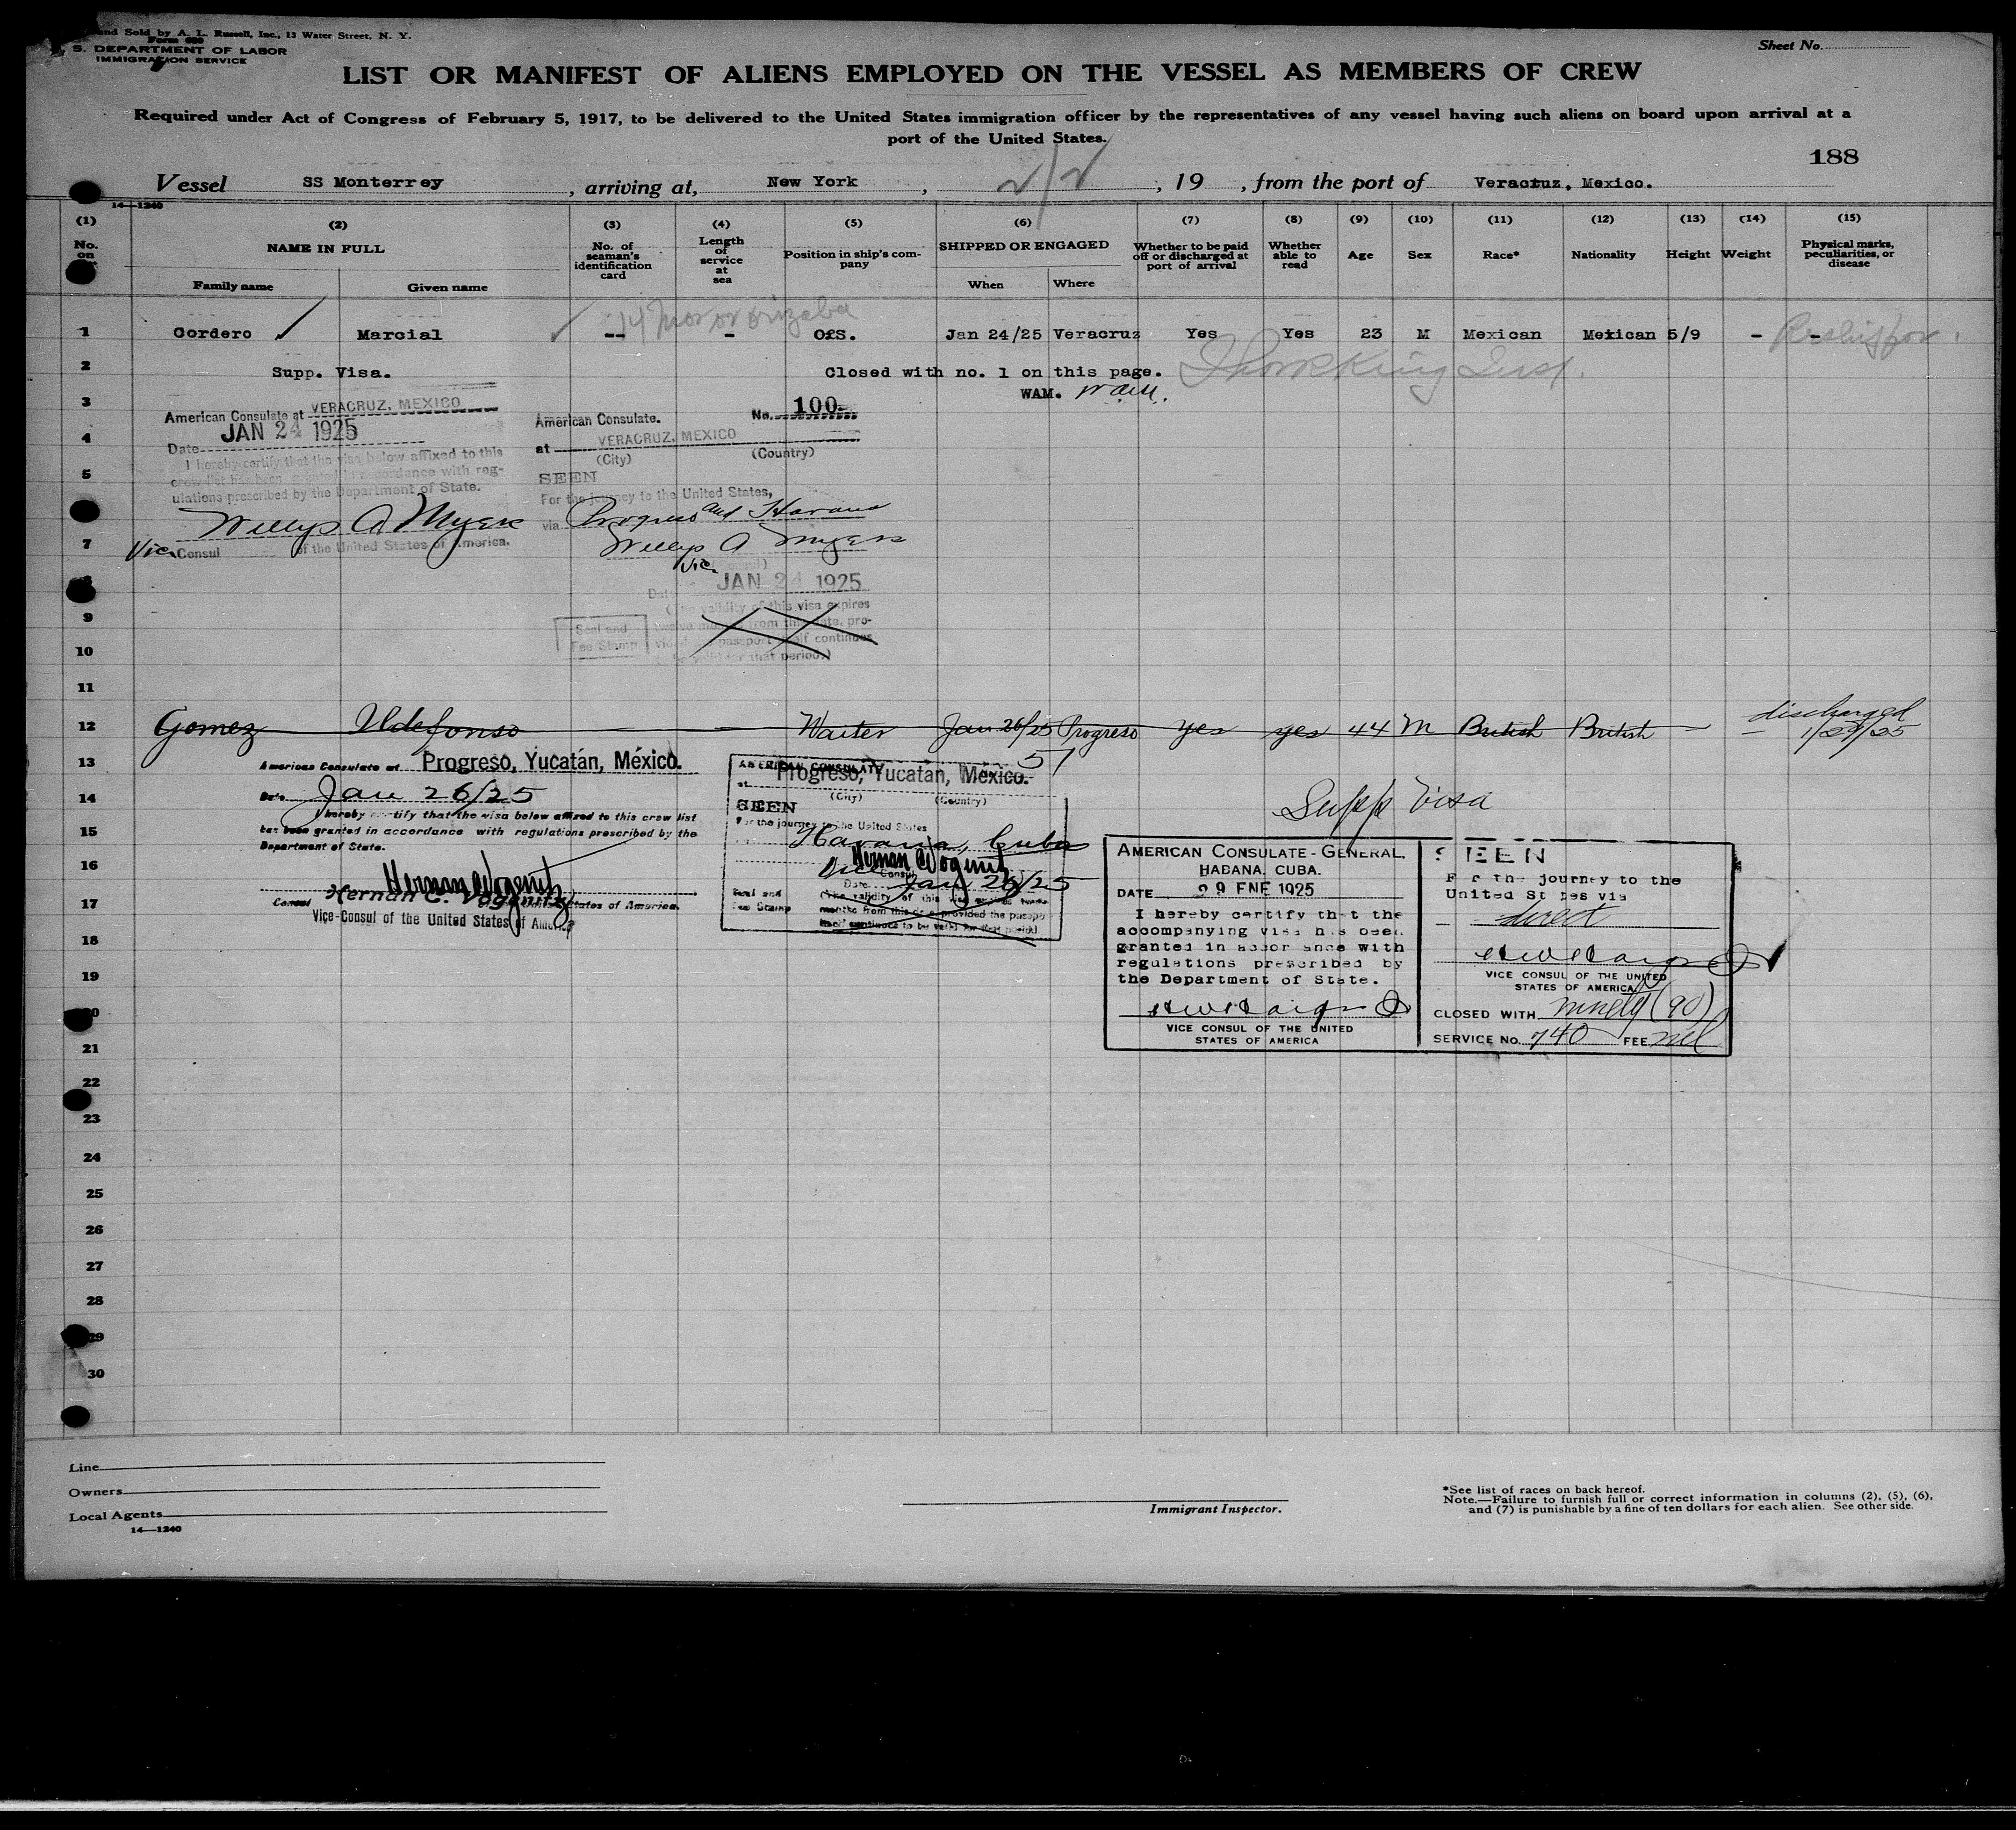 and Sold by A. L. Russell, Inc., 13 Water Street, N. Y.
Form 680
S. DEPARTMENT OF LABOR
IMMIGRATION SERVICE
Sheet No.
LIST OR MANIFEST OF ALIENS EMPLOYED ON THE VESSEL AS MEMBERS OF CREW
Required under Act of Congress of February 5, 1917, to be delivered to the United States immigration officer by the representatives of any vessel having such aliens on board upon arrival at a
port of the United States.
188
Vessel SS Monterrey, arriving at, New York, 2/2, 19 , from the port of Veracruz, Mexico.
14—1240
(1) (2) (3) (4) (5) (6) (7) (8) (9) (10) (11) (12) (13) (14) (15)
No. on
NAME IN FULL
Family name
Given name
No. of seaman's identification card
Length of service at sea
Position in ship's company
SHIPPED OR ENGAGED
When
Where
Whether to be paid off or discharged at port of arrival
Whether able to read
Age
Sex
Race*
Nationality
Height
Weight
Physical marks, peculiarities, or disease
14 mos on Orizaba
1 Cordero Marcial -- - OfS. Jan 24/25 Veracruz Yes Yes 23 M Mexican Mexican 5/9 - -
2 Supp. Visa. Closed with no. 1 on this page.
3 WAM.
American Consulate at VERACRUZ, MEXICO
JAN 24 1925
Date
I hereby certify that the visa below affixed to this
crew list has been granted in accordance with reg-
ulations prescribed by the Department of State.
Willys A Myers
Vice Consul of the United States of America.
American Consulate. No. 100
at VERACRUZ, MEXICO
(City) (Country)
SEEN
For the journey to the United States,
via Progreso and Havana
Willys A Myers
Vice
Date JAN 24 1925
(The validity of this visa expires
twelve months from this date, pro-
vided the passport itself continues
to be valid for that period.)
Seal and
Fee Stamp
4
5
7
8
9
10
11
12 Gomez Ildefonso - Waiter Jan 26/25 Progreso yes yes 44 M British British - - discharged
1/29/25
13
American Consulate at Progreso, Yucatán, México.
Date Jan 26/25
I hereby certify that the visa below affixed to this crew list
has been granted in accordance with regulations prescribed by the
Department of State.
Hernan C. Vogenitz
Consul of the United States of America.
Vice-Consul of the United States of America
AMERICAN CONSULATE 51
at Progreso, Yucatan, Mexico.
(City) (Country)
SEEN
For the journey to the United States
Havana, Cuba
Hernan C. Vogenitz
Vice Consul
Date Jan 26/25
Seal and
Fee Stamp
(The validity of this visa expires twelve
months from this date provided the passport
itself continues to be valid for that period)
Supp Visa
AMERICAN CONSULATE-GENERAL,
HABANA, CUBA.
DATE 29 ENE 1925
I hereby certify that the
accompanying visa has been
granted in accordance with
regulations prescribed by
the Department of State.
VICE CONSUL OF THE UNITED
STATES OF AMERICA
SEEN
For the journey to the
United States via
direct
VICE CONSUL OF THE UNITED
STATES OF AMERICA
CLOSED WITH ninety (90)
SERVICE No. 740 FEE nil
14
15
16
17
18
19
20
21
22
23
24
25
26
27
28
29
30
Line
Owners
Local Agents
14—1240
Immigrant Inspector.
*See list of races on back hereof.
Note.—Failure to furnish full or correct information in columns (2), (5), (6),
and (7) is punishable by a fine of ten dollars for each alien. See other side.